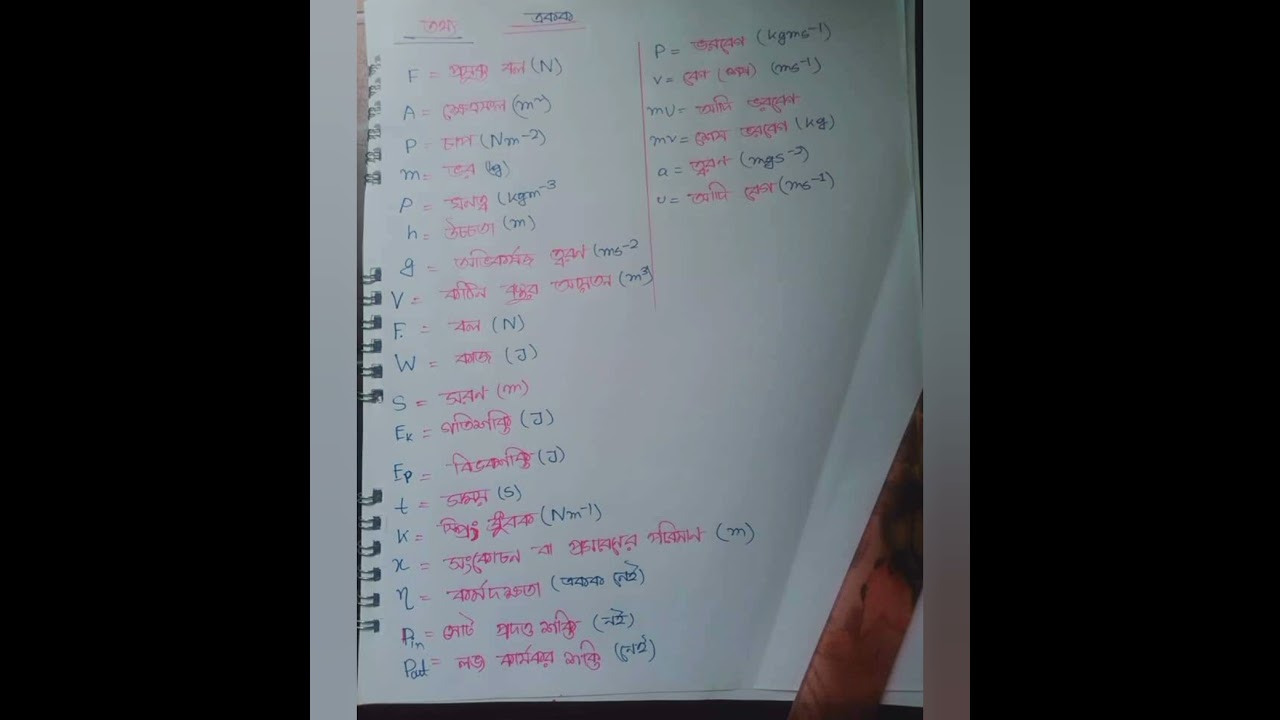 তথ্য একক
F = প্রযুক্ত বল (N)
A = ক্ষেত্রফল (m²)
P = চাপ (Nm-2)
m = ভর (kg)
ρ = ঘনত্ব (kgm-3
h = উচ্চতা (m)
g = অভিকর্ষজ ত্বরণ (ms-2
V = কঠিন বস্তুর আয়তন (m3)
F. = বল (N)
W = কাজ (J)
S = সরণ (m)
Ek = গতিশক্তি (J)
Ep = বিভবশক্তি (J)
t = সময় (S)
K = স্প্রিং ধ্রুবক (Nm-1)
x = সংকোচন বা প্রসারনের পরিমান (m)
η = কার্মদক্ষতা (একক নেই)
Pin = মোট প্রদত্ত শক্তি (নেই)
Pout = লব্ধ কার্যকর শক্তি (নেই)
P = ভরবেগ (kgms-1)
v = বেগ (শেষ) (ms-1)
mu = আদি ভরবেগ
mv = শেষ ভরবেগ (kg)
a = ত্বরণ (mgs-2)
u = আদি বেগ (ms-1)